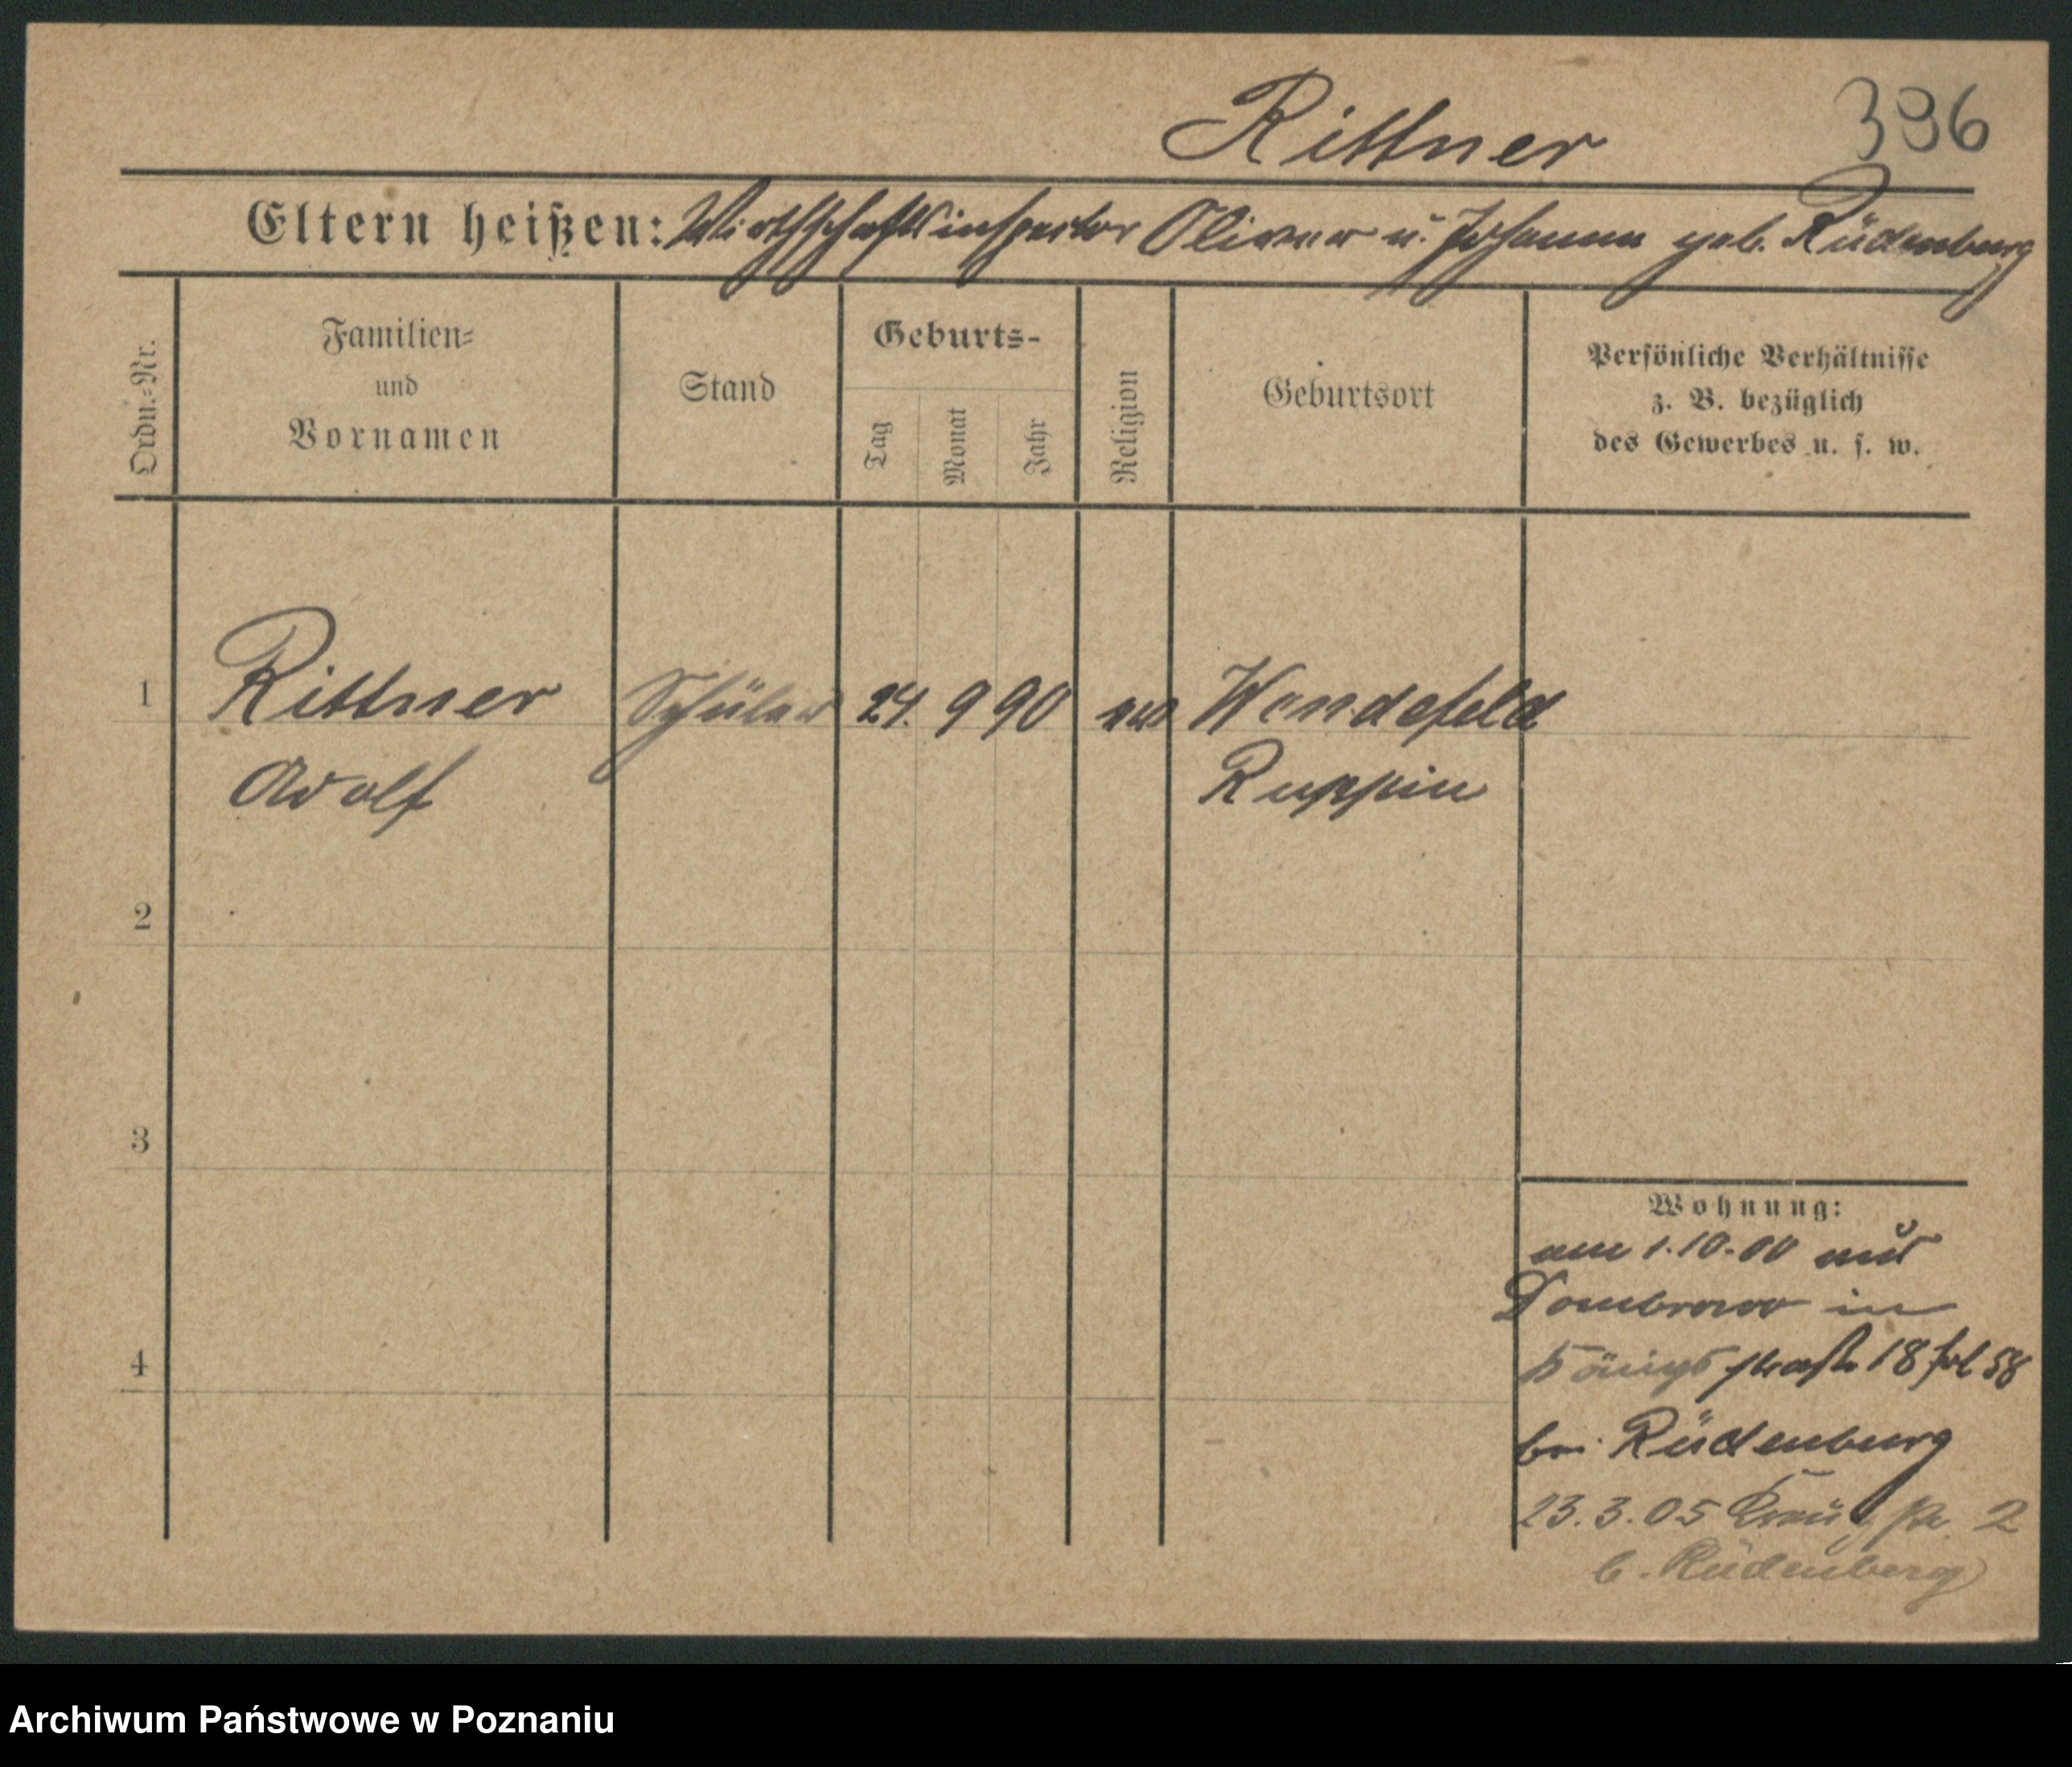 Rittner
396
Eltern heißen: Wirthschaftsinspector Oliver u. Johanna geb. Rüdenburg
Ordn.-Nr.
Familien-
und
Vornamen
Stand
Geburts-
Tag
Monat
Jahr
Religion
Geburtsort
Persönliche Verhältnisse
z. B. bezüglich
des Gewerbes u. s. w.
1
Rittner
Schüler
24. 9 90
Wendefeld
Adolf
Ruppin
2
3
4
Wohnung:
am 1.10.00 aus
Dombrowo in
Königsstraße 18 fol 58
bei Rüdenburg
23.3.05 2
b. Rüdenberg
Archiwum Państwowe w Poznaniu